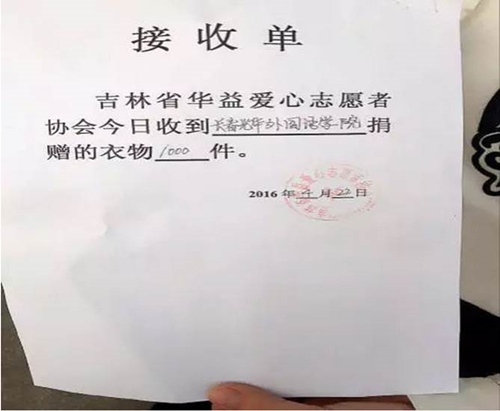 接收单
吉林省华益爱心志愿者
协会今日收到长春光华外国语学院捐
赠的衣物1000件。
2016年4月22日